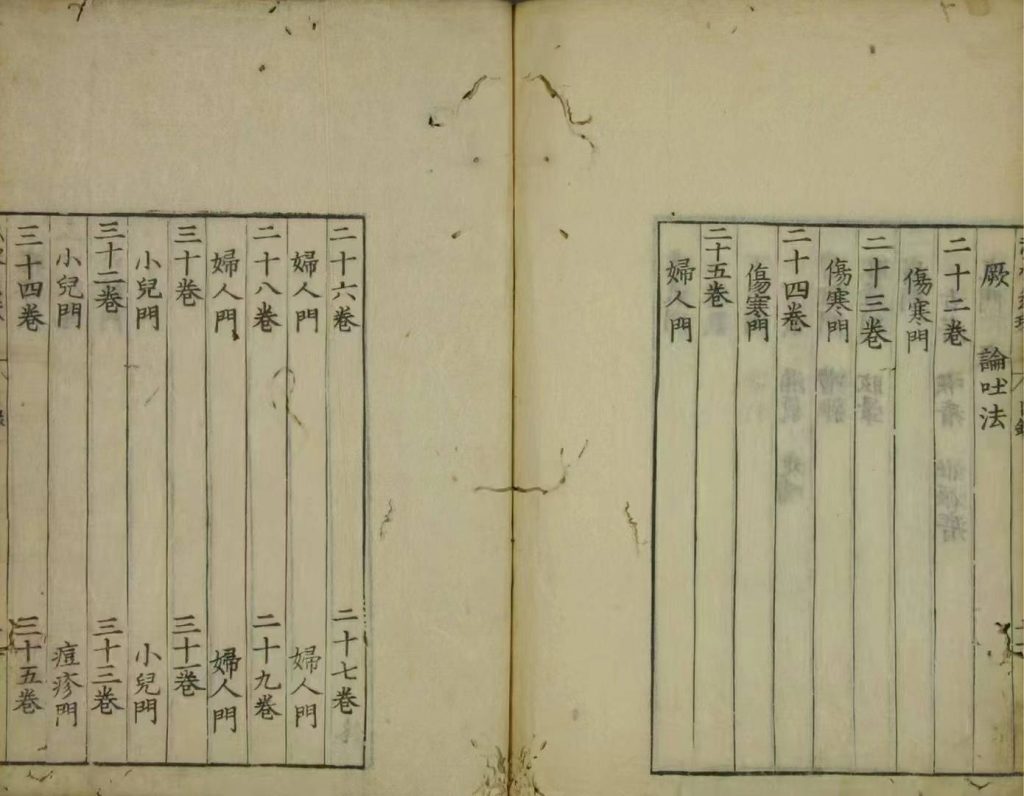 厥 論吐法
二十二卷
傷寒門
二十三卷
傷寒門
二十四卷
傷寒門
二十五卷
婦人門
二十六卷 二十七卷
婦人門 婦人門
二十八卷 二十九卷
婦人門 婦人門
三十卷 三十一卷
小兒門 小兒門
三十二卷 三十三卷
小兒門 痘疹門
三十四卷 三十五卷